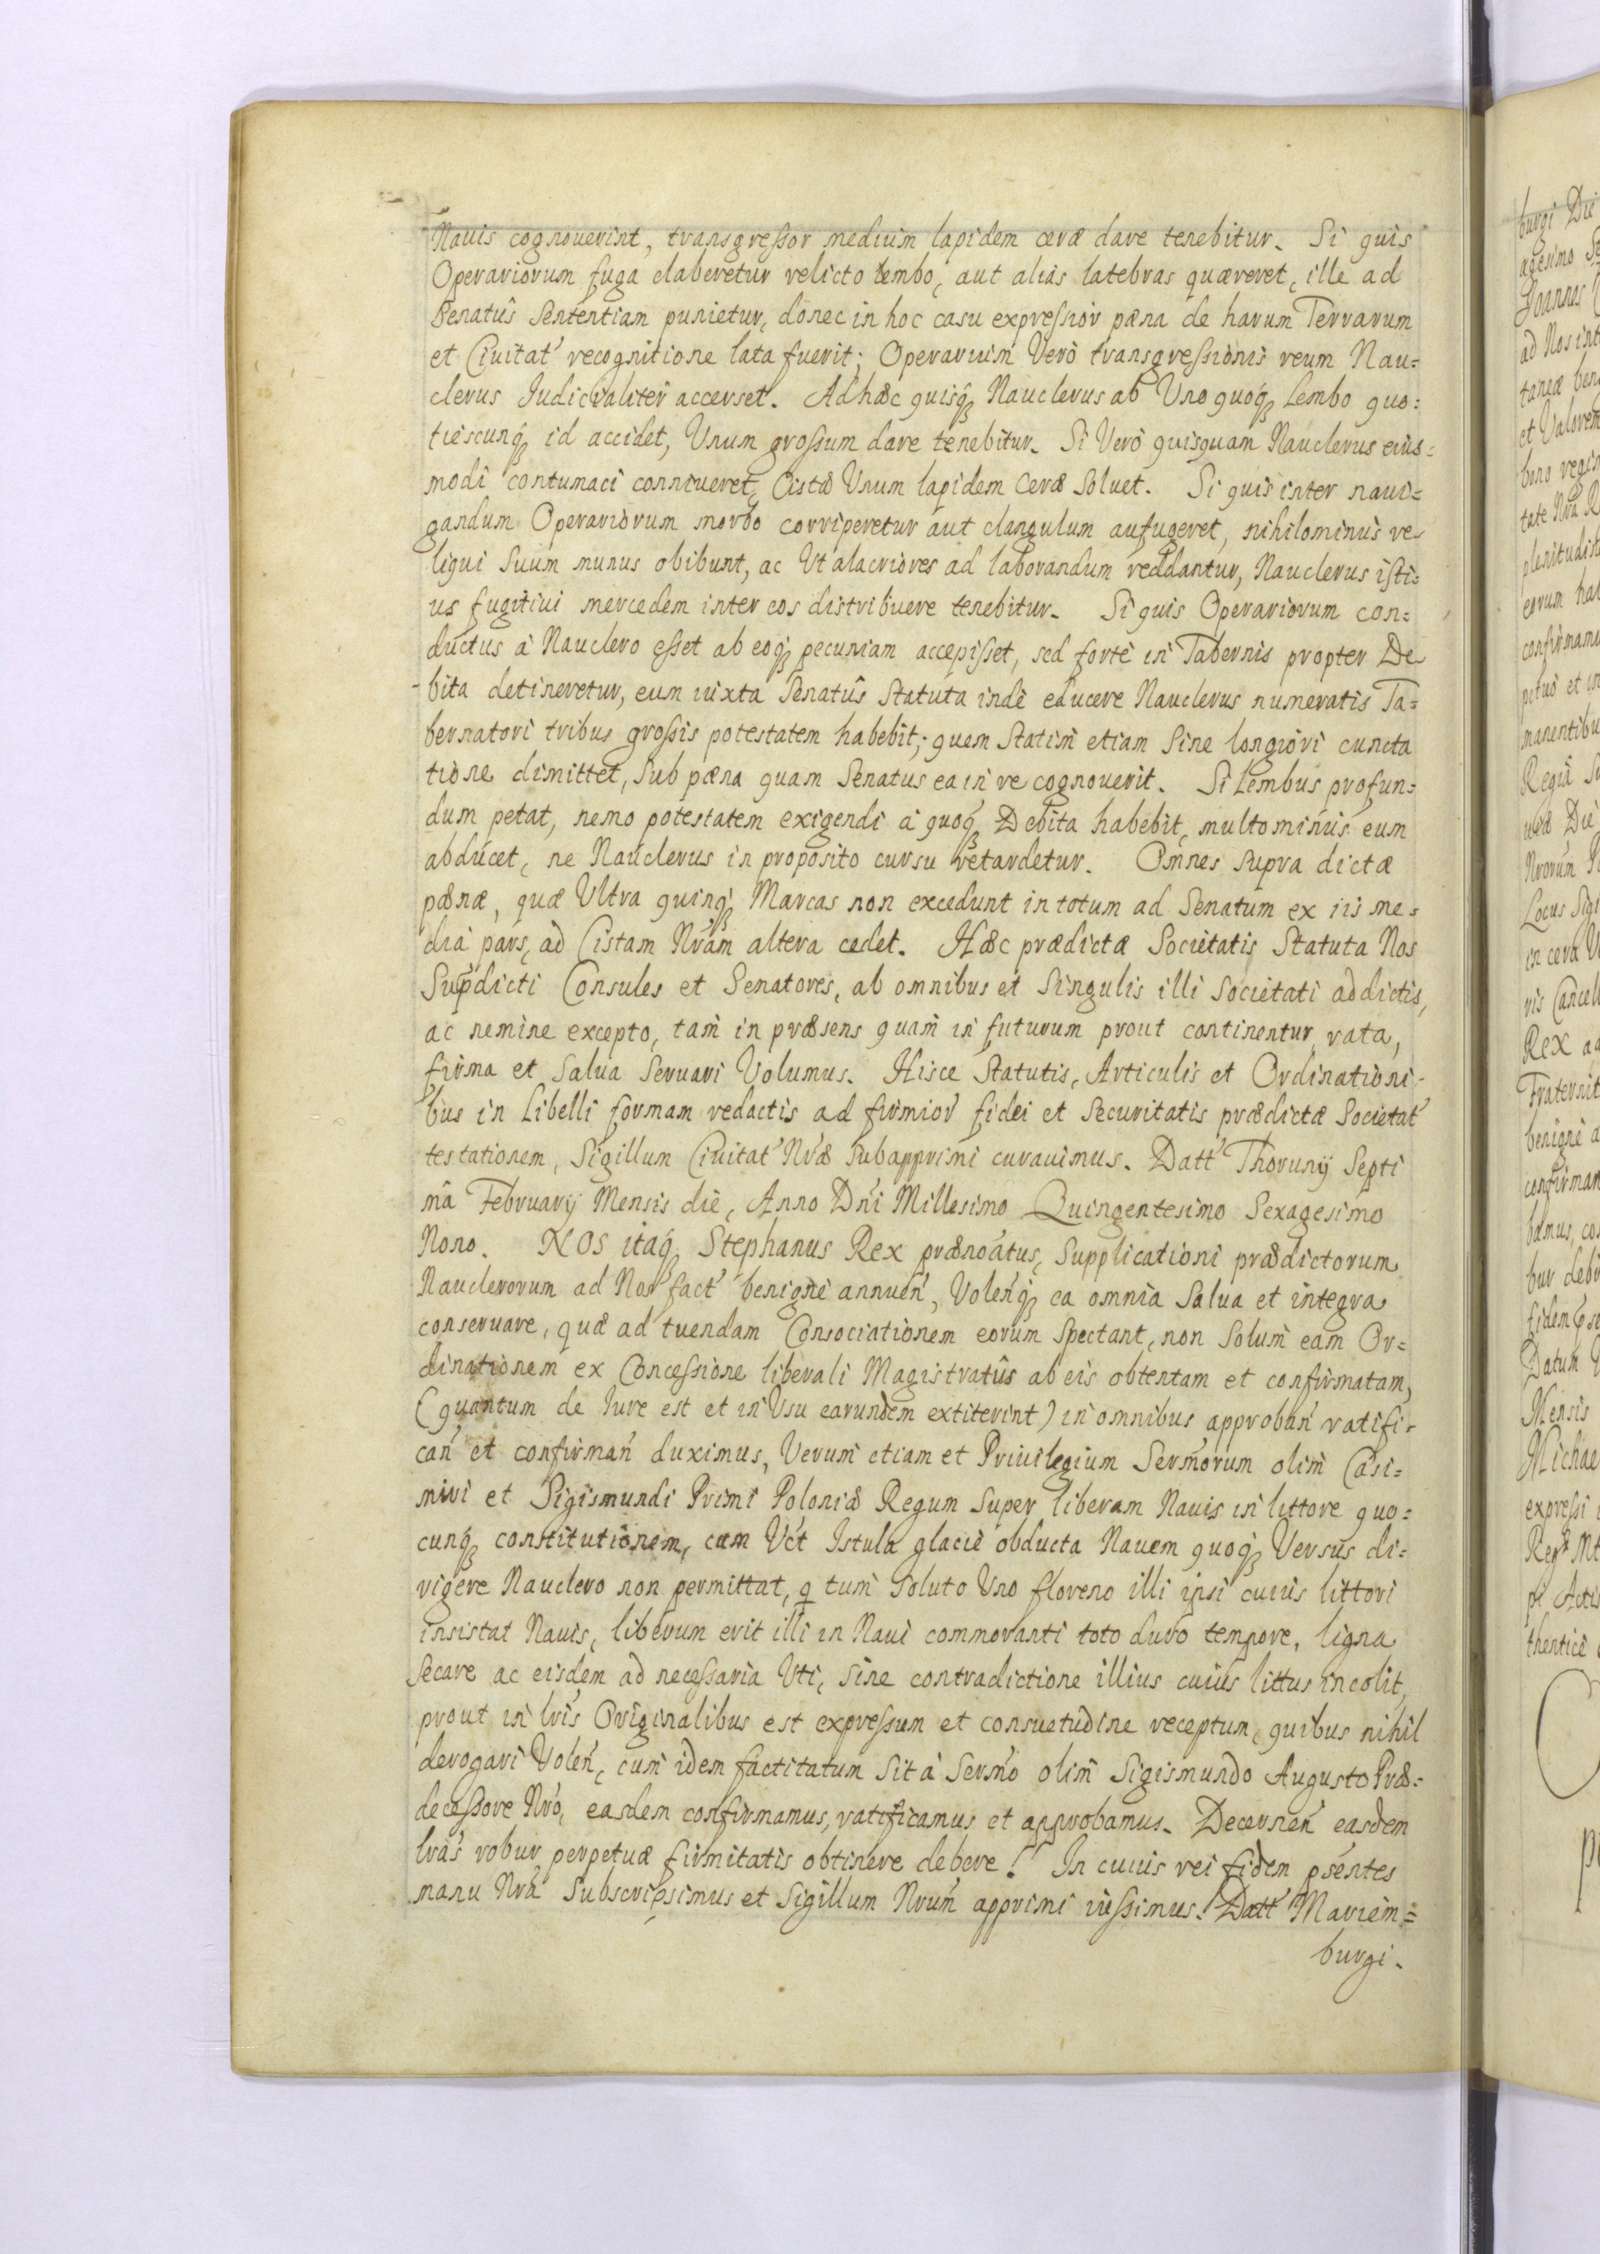 Nauis cognouerint, transgressor medium lapidem ceræ dare tenebitur. Si quis
Operariorum fuga elaberetur relicto lembo, aut aliàs latebras quæreret, ille ad
Senatûs Sententiam punietur, donec in hoc casu expressior pæna de harum Terrarum
et Ciuitat' recognitione lata fuerit; Operarium Verò transgressionis reum Nau=
clerus Iudicialiter accerset. Ad hæc quisq; Nauclerus ab Uno quoq; Lembo quo=
tiescunq; id accidet, Unum grossum dare tenebitur. Si Verò quisquam Nauclerus eius=
modi contumaci conniueret, Cistæ Unum lapidem Ceræ Soluet. Si quis inter naui=
gandum Operariorum morbo corriperetur aut clangulum aufugeret, nihilominus re
liqui Suum munus obibunt, ac Ut alacriores ad laborandum reddantur, Nauclerus isti=
us fugitiui mercedem inter eos distribuere tenebitur. Si quis Operariorum con=
ductus à Nauclero esset ab eoq; pecuniam accepisset, sed fortè in Tabernis propter De
bita detineretur, eum iuxta Senatûs Statuta indè educere Nauclerus numeratis Ta=
bernatori tribus grossis potestatem habebit; quem Statim etiam Sine longiori cuncta
tione dimittet, Sub pæna quam Senatus ea in re cognouerit. Si Lembus profun=
dum petat, nemo potestatem exigendi à quoq; Debita habebit, multominus eum
abducet, ne Nauclerus in proposito cursu retardetur. Omnes Supra dictæ
pænæ, quæ Ultra quinq; Marcas non excedunt in totum ad Senatum ex iis me=
dia pars, ad Cistam Nrãm altera cedet. Hæc prædictæ Societatis Statuta Nos
Supdicti Consules et Senatores, ab omnibus et Singulis illi Societati addictis,
ac nemine excepto, tam in præsens quam in futurum prout continentur, rata,
firma et Salua Seruari Volumus. Hisce Statutis, Articulis et Ordinationi=
bus in Libelli formam redactis ad firmior' fidei et Securitatis prædictæ Societat'
testationem, Sigillum Ciuitat' Nræ Subapprimi curauimus. Datt' Thorunij Septi
mâ Februarij Mensis diè, Anno Dñi Millesimo Quingentesimo Sexagesimo
Nono. NOS itaq; Stephanus Rex prænoatus, Supplicationi prædictorum
Nauclerorum ad Nos fact' benignè annuen', Volenq; ea omnia Salua et integra
conseruare, quæ ad tuendam Consociationem eorum Spectant, non Solum eam Or=
dinationem ex Concessione liberali Magistratûs ab eis obtentam et confirmatam,
(quantum de Iure est et in Usu earundem extiterint) in omnibus approban' ratifi=
can' et confirman' duximus, Verum etiam et Priuilegium Sermorum olim Casi=
miri et Sigismundi Primi Poloniæ Regum Super liberam Nauis in littore quo=
cunq; constitutionem, cum Vt Istula glaciè obducta Nauem quoq; Versus di=
rigere Nauclero non permittat, q tum Soluto Uno floreno illi ipsi cuius littori
insistat Nauis, liberum erit illi in Naui commoranti toto duro tempore, ligna
Secare ac eisdem ad necessaria Uti, Sine contradictione illius cuius littus incolit,
prout in lris Originalibus est expressum et consuetudine receptum, quibus nihil
derogari Volen', cum idem factitatum Sit à Sermo olim Sigismundo Augusto Præ=
decessore Nro, easdem confirmamus, ratificamus et approbamus. Decernen' easdem
lras robur perpetuæ firmitatis obtinere debere! In cuius rei fidem psentes
manu Nra Subscripsimus et Sigillum Nrum apprimi iussimus! Datt' Mariem=
burgi.